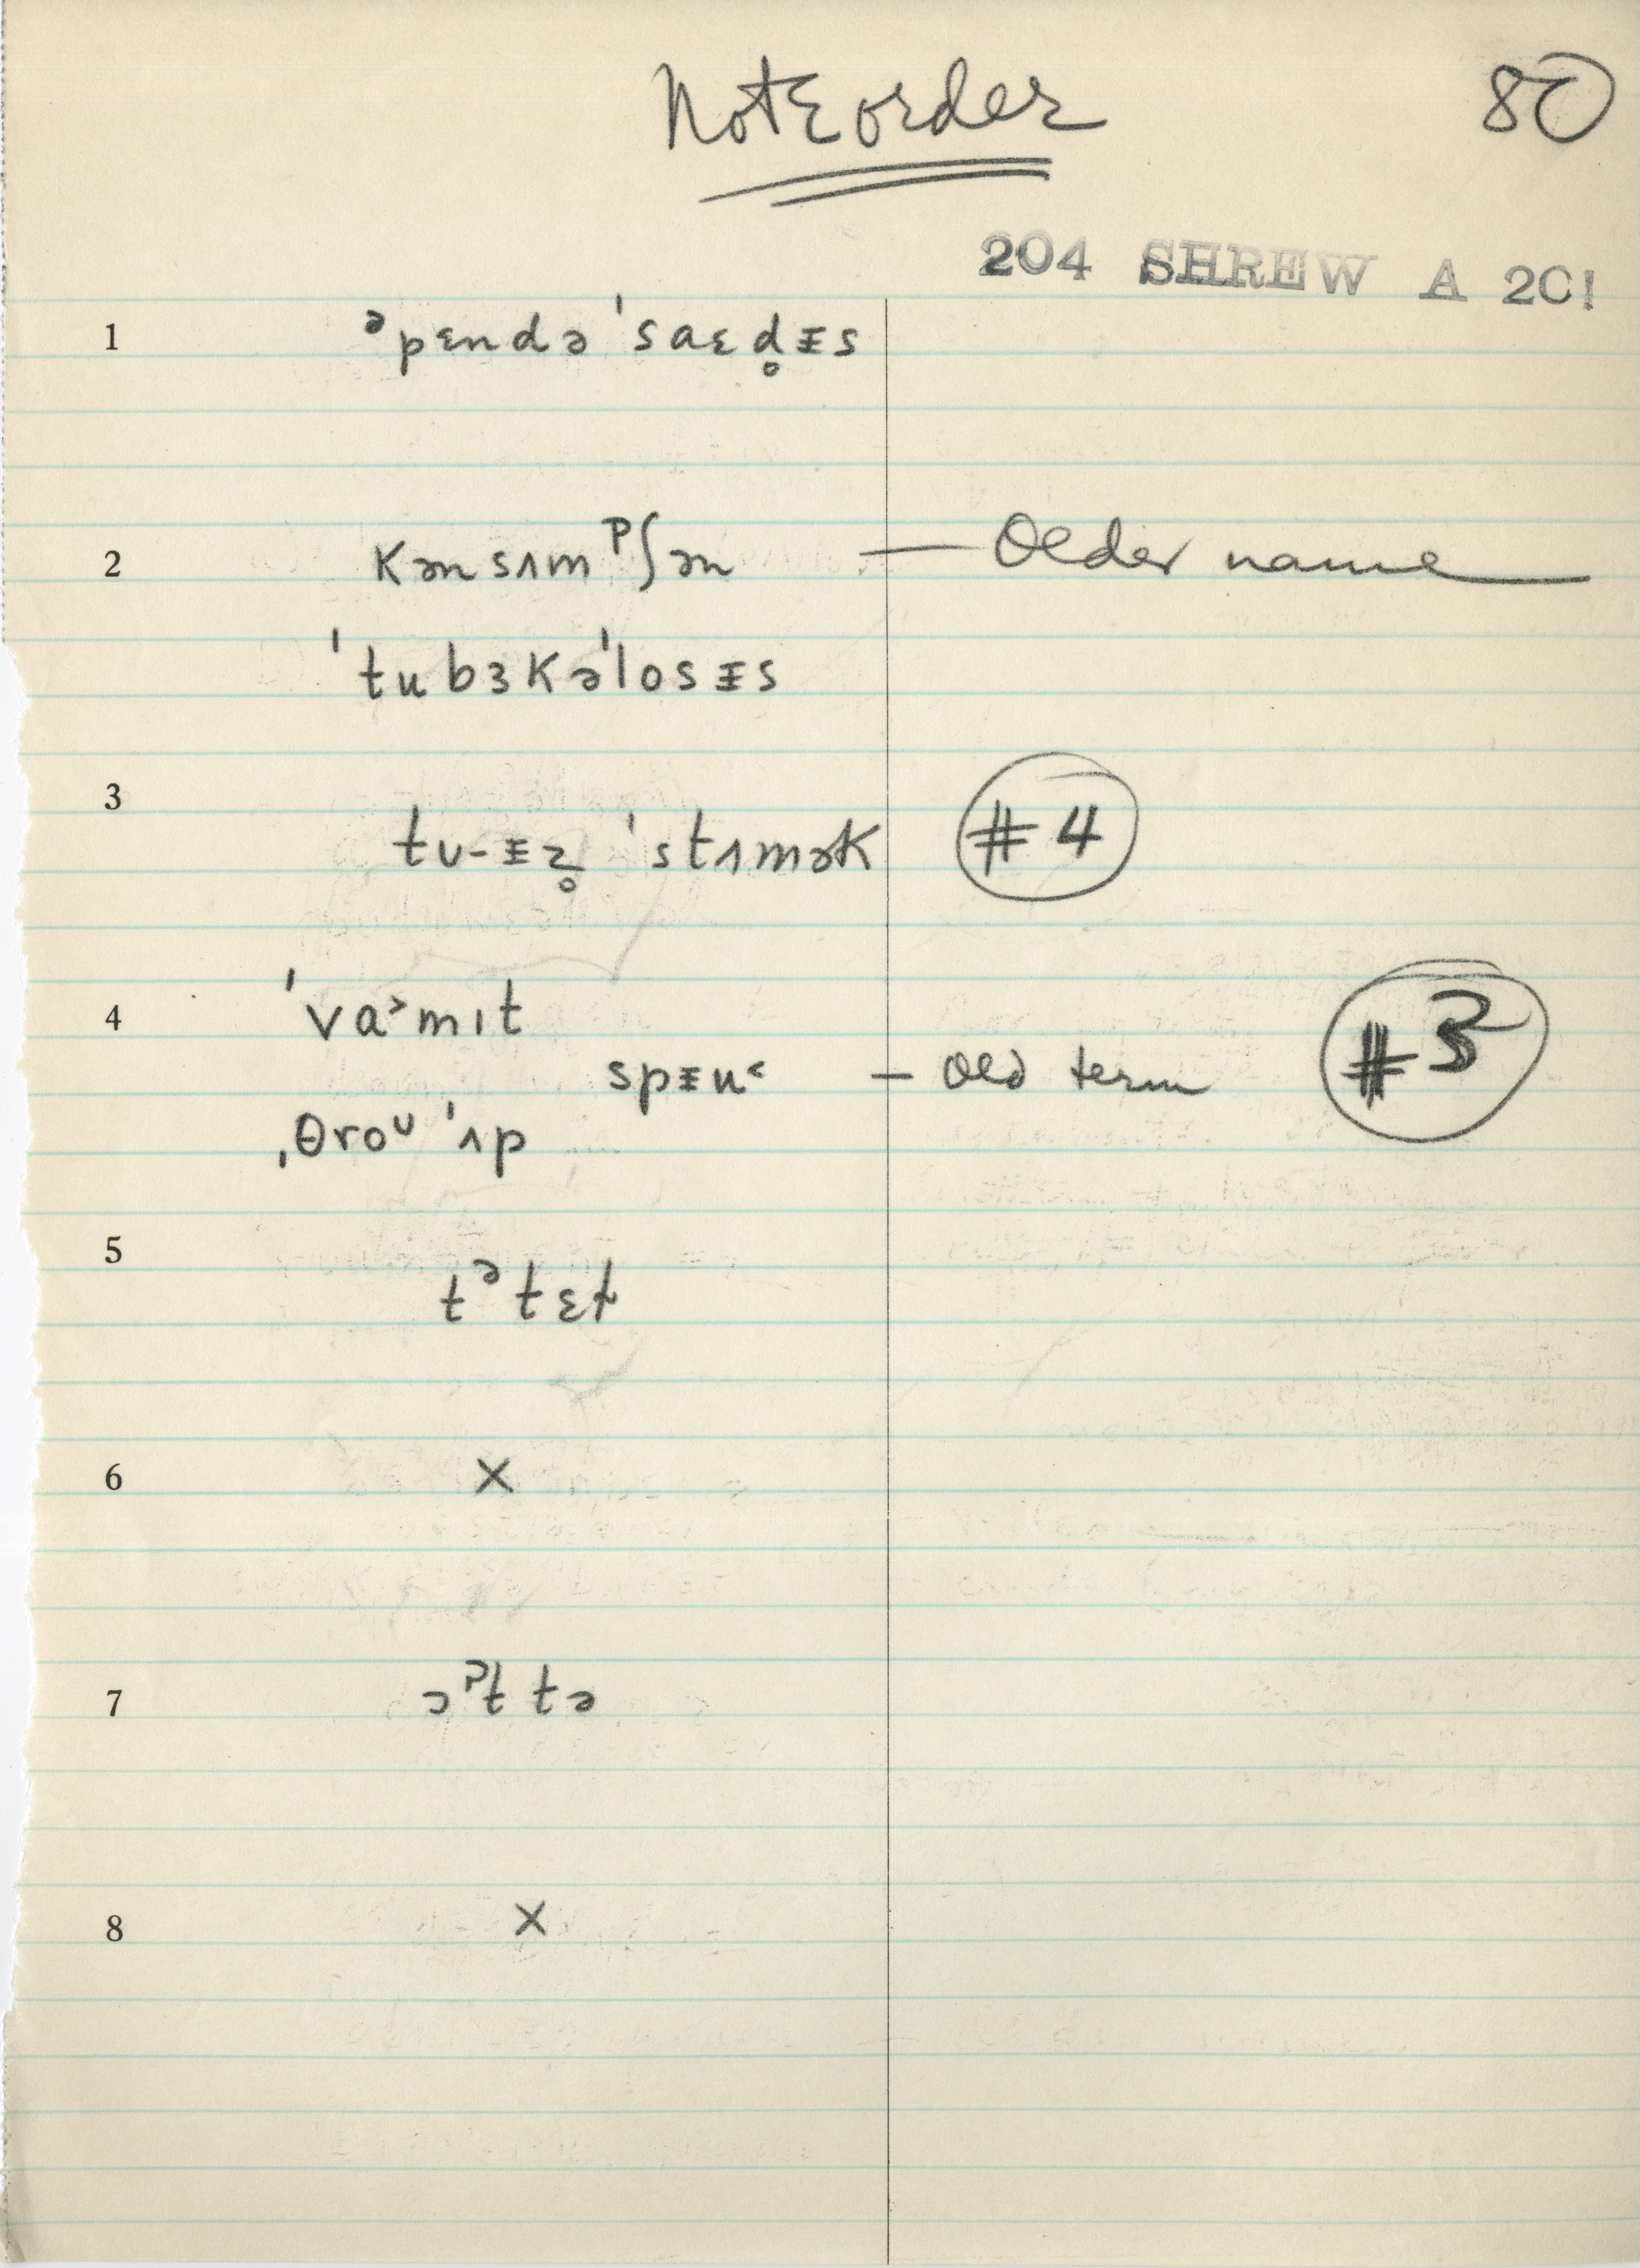 Note order
80
204 SHREW A 20!
1 ᵊpɛndə ˈsaɛd̥ᵻs
2 kənsʌmᵖʃən — Older name
ˈtubɜkəˈlosᵻs
3 tʊ-ᵻz̥ ˈstʌmək #4
4 ˈva˃mɪt
spᵻu˂ — old term #3
ˌθroᶷ ˈʌp
5 tᵊtɛt
6 X
7
8 X